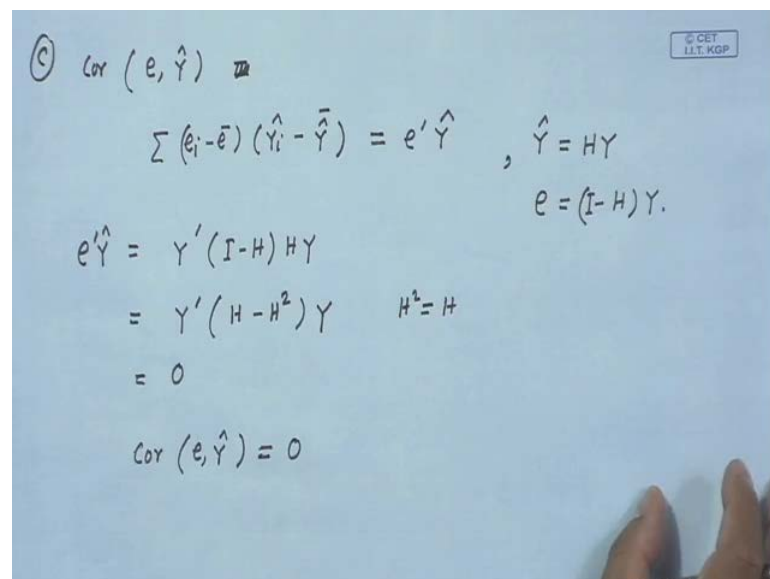 © CET
I.I.T. KGP
(c) Cor (e, Ŷ) =
Σ (eᵢ - ē) (Ŷᵢ - Ŷ̄) = e′Ŷ , Ŷ = HY
e = (I-H) Y.
e′Ŷ = Y′(I-H) HY
= Y′(H - H²) Y H² = H
= 0
Cor (e, Ŷ) = 0